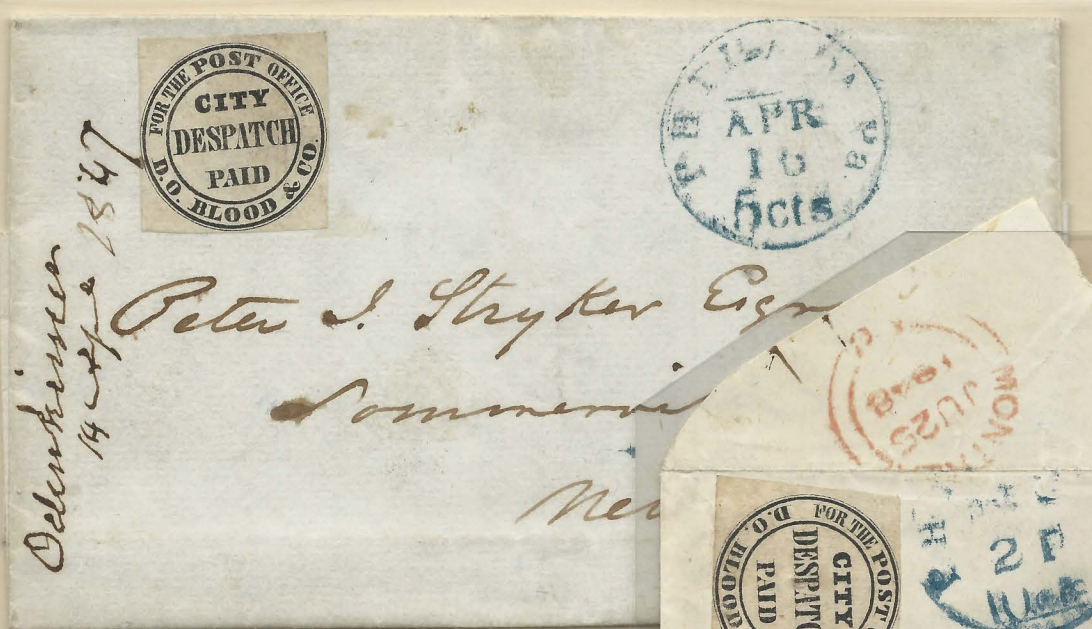 FOR THE POST OFFICE
CITY
DESPATCH
PAID
D.O. BLOOD & CO.
PHILA Pa
APR
16
5cts
14 1847
Peter I. Stryker Esqr
Sommervi
Ne
MONT
JU 25
1848
FOR THE POST
CITY
DESPATC
PAID
D.O. BLOOD
PH
2
10